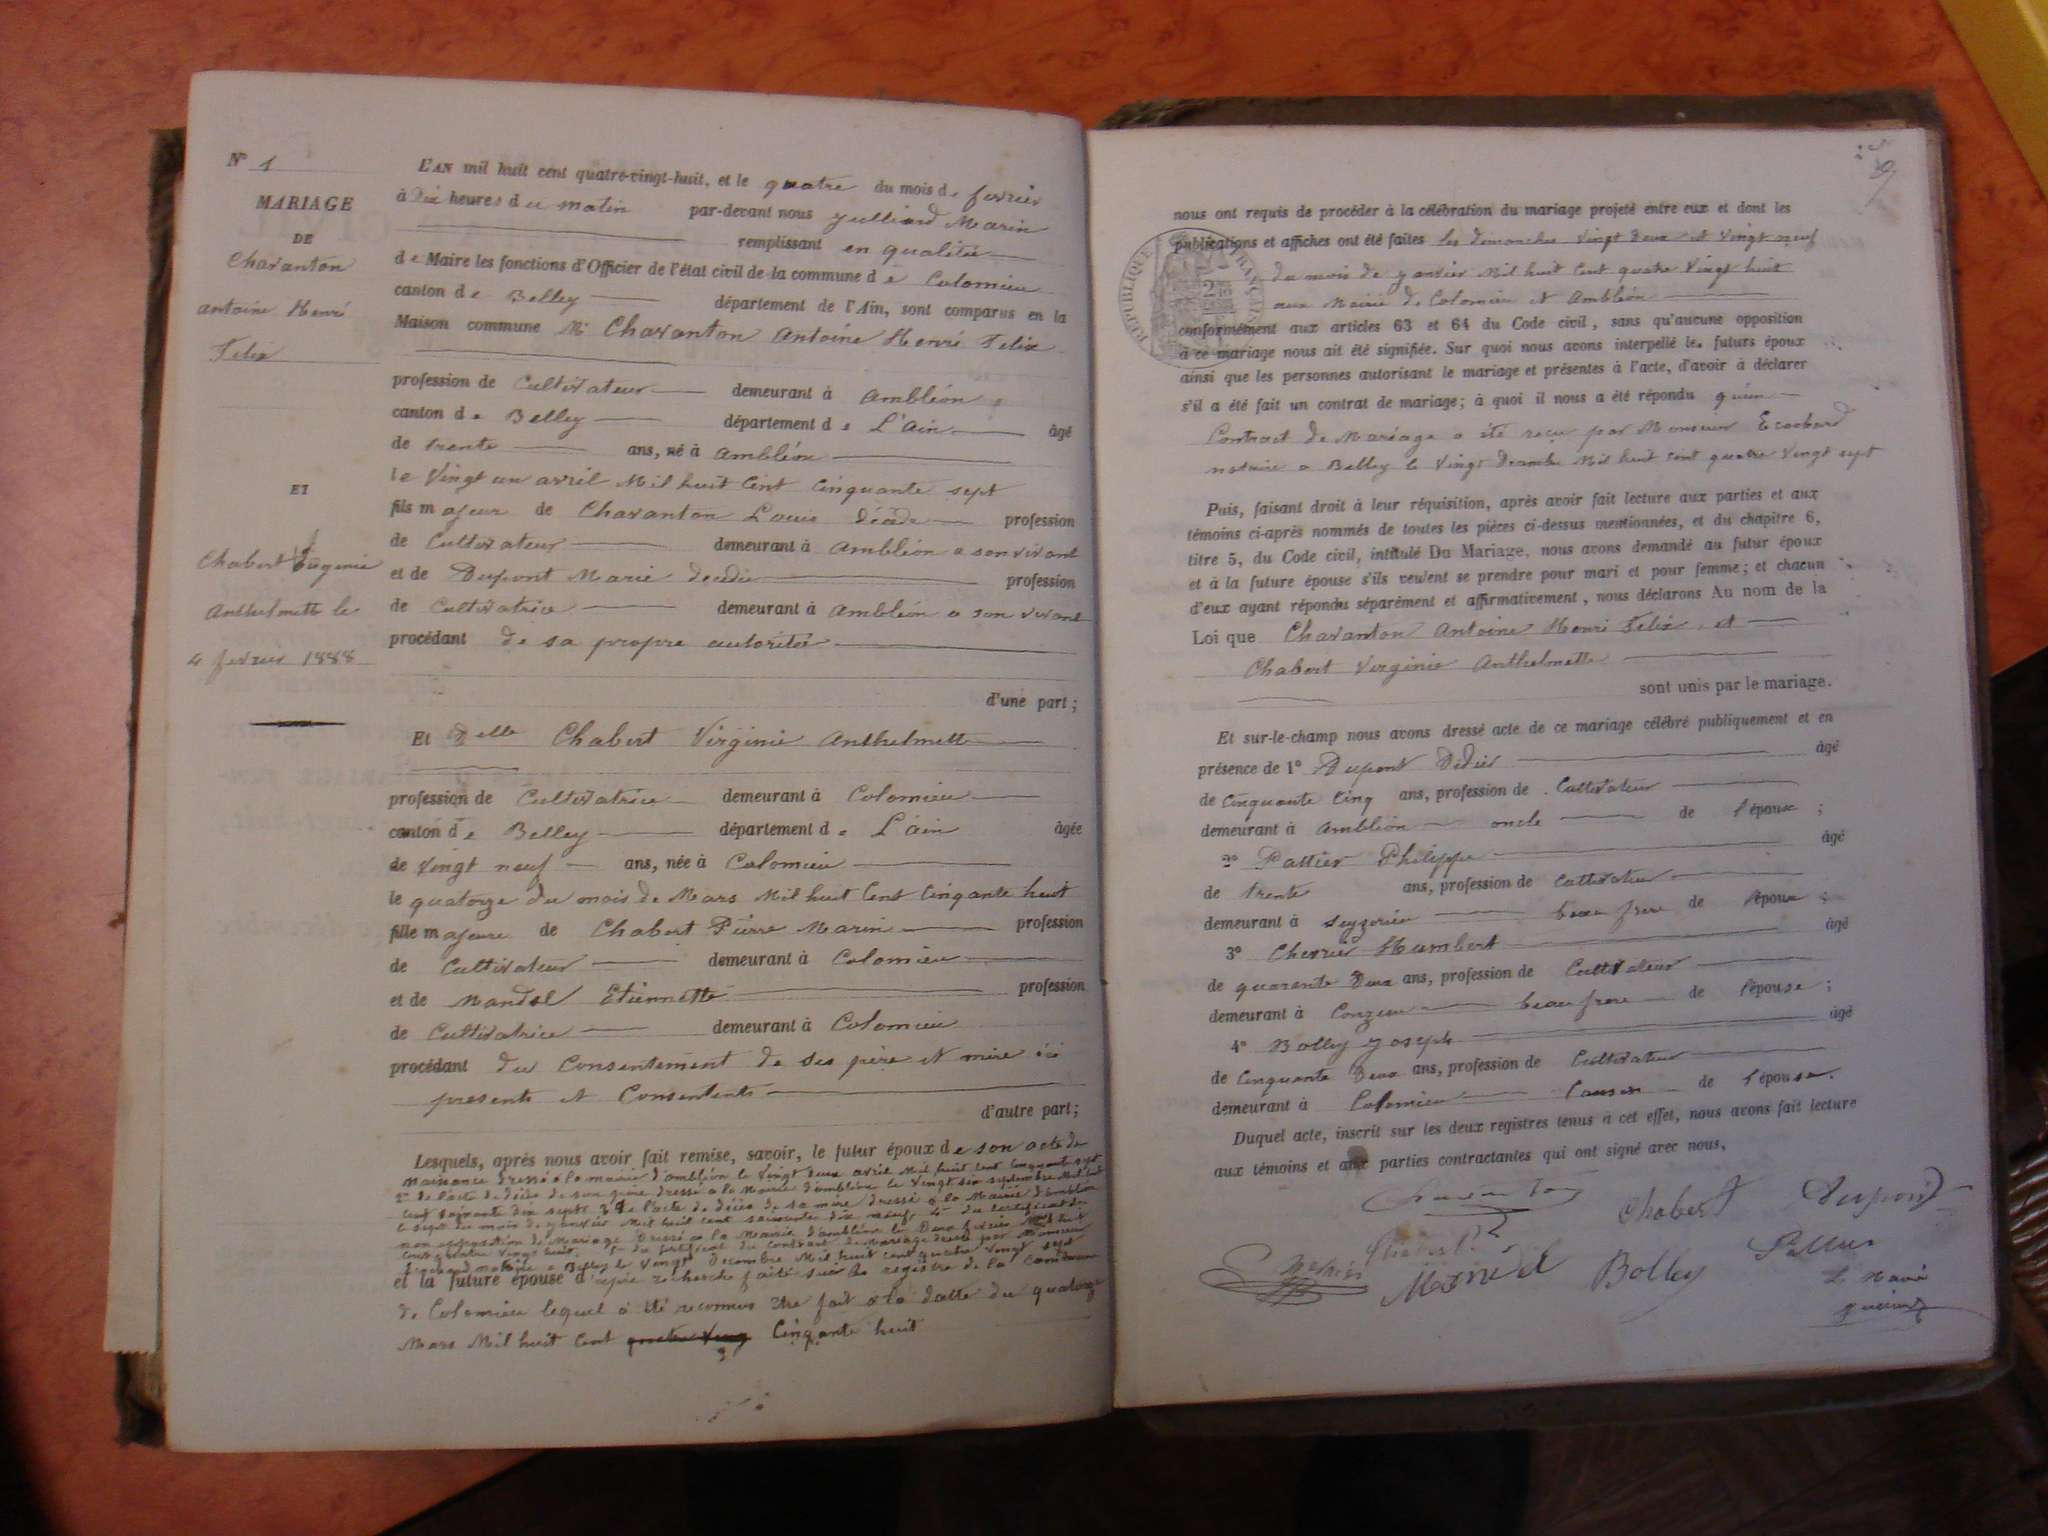 N° 1
MARIAGE
DE
Charanton
antoine Henri
Felix
ET
Chabert
Anthelmette le
4 fevrier 1888
L'AN mil huit cent quatre-vingt-huit, et le quatre du mois de fevrier
à Dix heures du matin par-devant nous Marin
remplissant en qualitée
de Maire les fonctions d'Officier de l'état civil de la commune de Colomieu
canton de Belley département de l'Ain, sont comparus en la
Maison commune Mr Charanton Antoine Henri Felix
profession de Cultivateur demeurant à Ambléon
canton de Belley département de L'ain âgé
de trente ans, né à Ambléon
le Vingt un avril Mil huit Cent Cinquante sept
fils majeur de Charanton Louis Décédé profession
de Cultivateur demeurant à Ambléon a son vivant
et de Dupont Marie decedée profession
de Cultivatrice demeurant à Ambléon a son vivant
procédant de sa propre autorité
d'une part ;
Et Delle Chabert Virginie Anthelmette
profession de Cultivatrice demeurant à Colomieu
canton de Belley département de L'ain âgée
de Vingt neuf ans, née à Colomieu
le quatorze du mois de Mars Mil huit Cent Cinqante huit
fille majeure de Chabert Pierre Marin profession
de Cultivateur demeurant à Colomieu
et de Mandel Etiennette profession
de Cultivatrice demeurant à Colomieu
procédant du Consentement de ses père et mère ici
presents et Consentents
d'autre part ;
Lesquels, après nous avoir fait remise, savoir, le futur époux de son acte de
naissance dressé a la mairie d'ambléon le Vingt deux avril Mil huit Cent Cinquante sept
2° de l'acte de décès de son père dressé a la Mairie d'ambléon le Vingt six septembre Mil huit
Cent soixante dix sept 3° de l'acte de décès de sa mère dressé a la Mairie d'ambléon
le sept du mois de janvier Mil huit Cent soixante dix neuf 4° du certificat de
non opposition de Mariage Dressé a la Mairie d'ambléon le Deux fevrier Mil huit
Cent quatre Vingt huit. 5° du certificat du Contrat de Mariage dressé par Monsieur
notaire a Belley le Vingt Decembre Mil huit Cent quatre Vingt sept
et la future épouse d'après recherche faite sur les registre de la Commune
de Colomieu lequel a été reconnus être fait a la datte du quatorze
Mars Mil huit Cent quatre Ving Cinqante huit
nous ont requis de procéder à la célébration du mariage projeté entre eux et dont les
publications et affiches ont été faites les dimanches Vingt Deux et Vingt neuf
du mois de janvier Mil huit Cent quatre Vingt huit
aux Mairie de Colomieu et Ambléon
conformément aux articles 63 et 64 du Code civil, sans qu'aucune opposition
à ce mariage nous ait été signifiée. Sur quoi nous avons interpellé les futurs époux
ainsi que les personnes autorisant le mariage et présentes à l'acte, d'avoir à déclarer
s'il a été fait un contrat de mariage ; à quoi il nous a été répondu qu'un
Contract de Mariage a été reçu par Monsieur
notaire a Belley le Vingt Decembre Mil huit Cent quatre Vingt sept
Puis, faisant droit à leur réquisition, après avoir fait lecture aux parties et aux
témoins ci-après nommés de toutes les pièces ci-dessus mentionnées, et du chapitre 6,
titre 5, du Code civil, intitulé Du Mariage, nous avons demandé au futur époux
et à la future épouse s'ils veulent se prendre pour mari et pour femme ; et chacun
d'eux ayant répondu séparément et affirmativement, nous déclarons Au nom de la
Loi que Charanton Antoine Henri Felix, et
Chabert Virginie Anthelmette
sont unis par le mariage.
Et sur-le-champ nous avons dressé acte de ce mariage célébré publiquement et en
présence de 1° Dupont Didier âgé
de Cinquante Cinq ans, profession de Cultivateur
demeurant à Ambléon oncle de l'époux ;
2° Pattier Philippe âgé
de trente ans, profession de Cultivateur
demeurant à Seyzerieu beau frere de l'époux ;
3° Chervier Humbert âgé
de quarante Deux ans, profession de Cultivateur
demeurant à Conzieu beau frere de l'épouse ;
4° Bolley Joseph âgé
de Cinquante Deux ans, profession de Cultivateur
demeurant à Colomieu Cousin de l'épouse.
Duquel acte, inscrit sur les deux registres tenus à cet effet, nous avons fait lecture
aux témoins et aux parties contractantes qui ont signé avec nous,
Chabert Dupont
Mandel Bolley